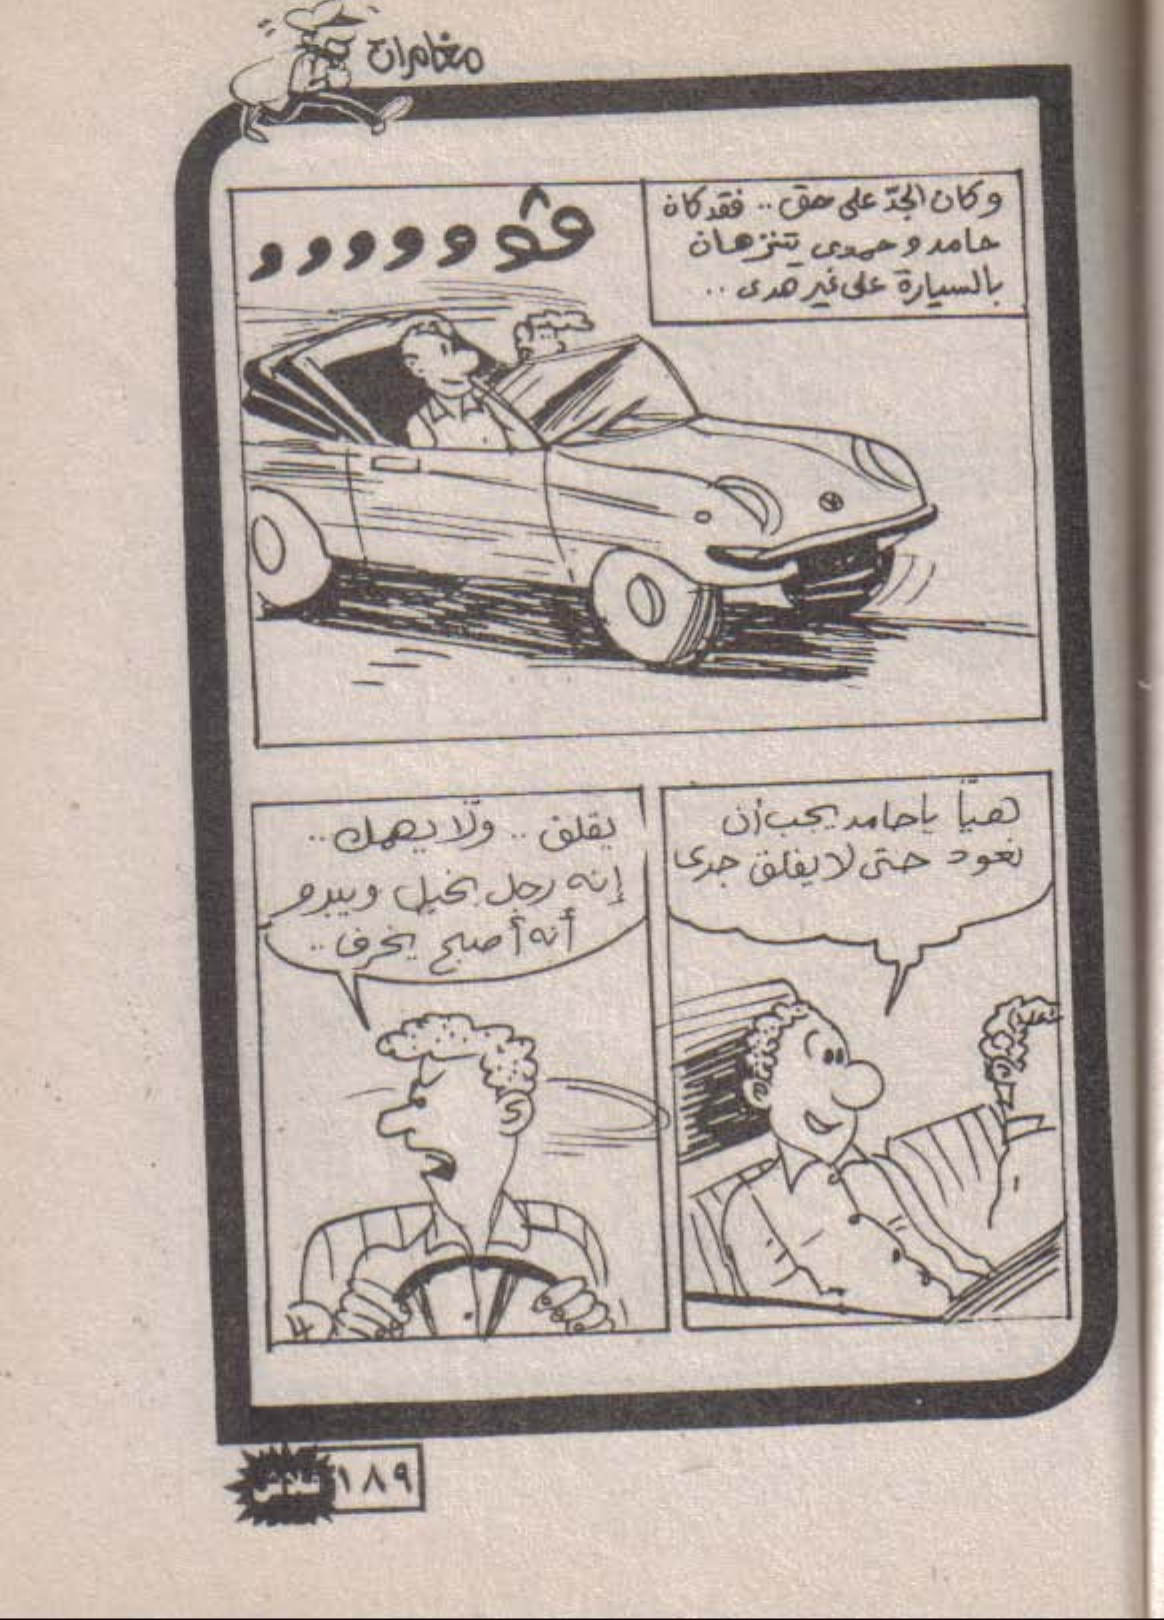 مغامرات
و كان الجدّ على حق .. فقد كان
حامد و حمدى يتنزهان
بالسيارة على غير هدى ..
ڤوووووو
هيّا يا حامد يجب أن
نعود حتى لا يقلق جدى
يقلق .. ولّا يهمك ..
إنه رجل بخيل ويبدو
أنه أصبح يخرف ..
١٨٩
فلاش